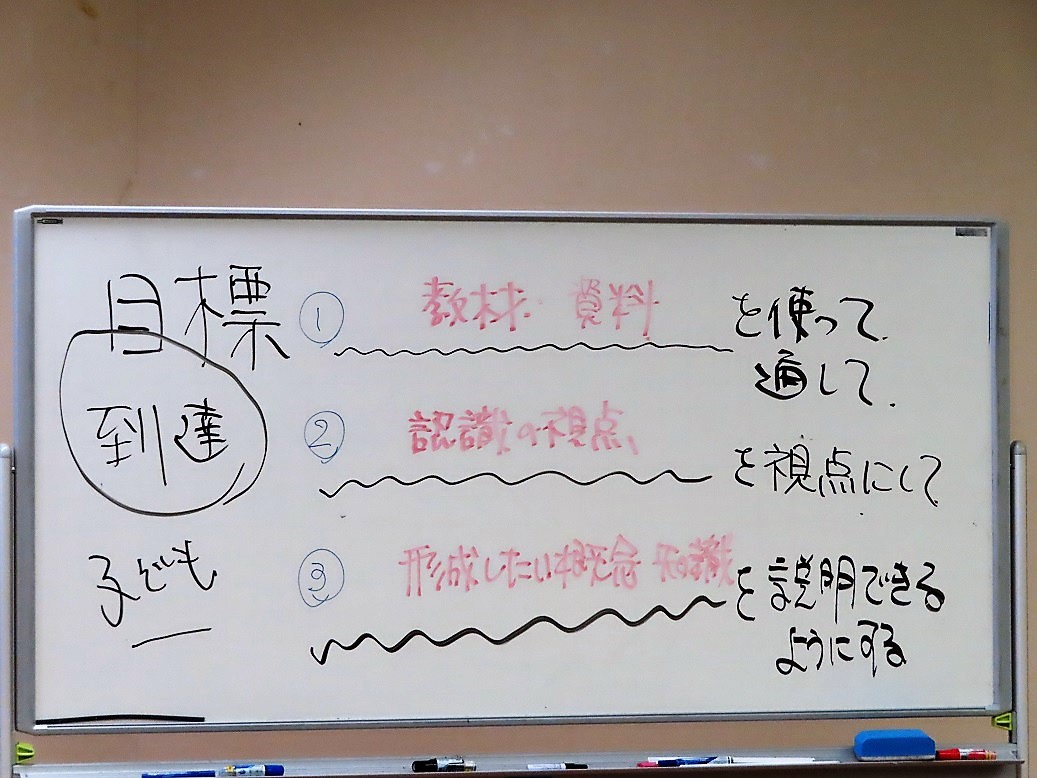 目標
到達
子ども
① 教材・資料 を使って
通して
② 認識の視点、 を視点にして
③ 形成したい概念 知識 を説明できる
ようにする